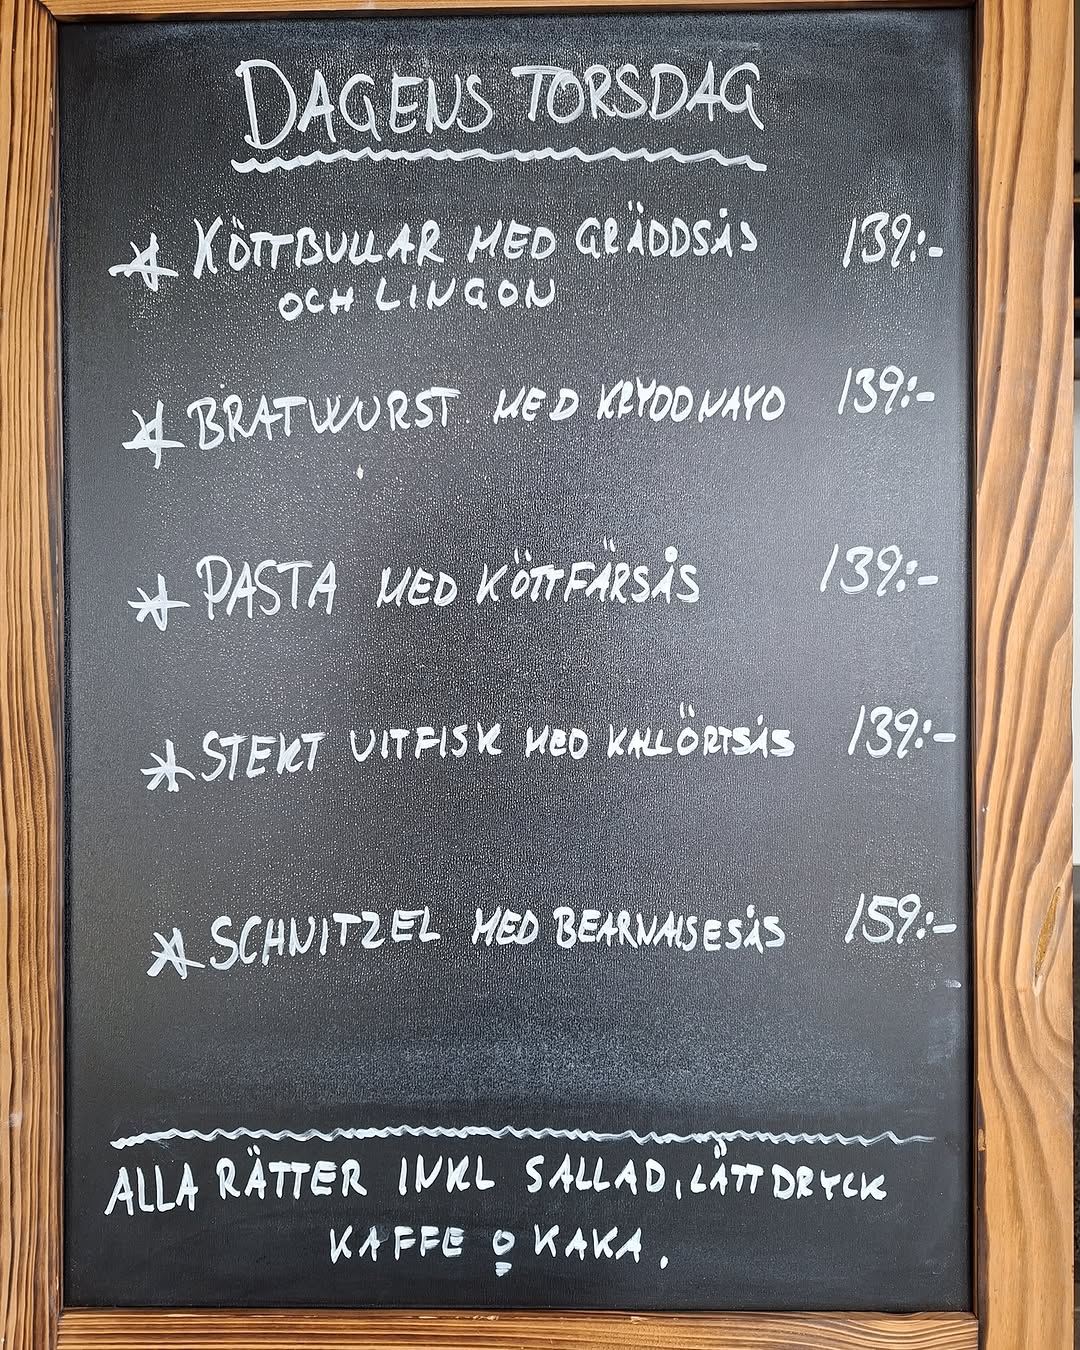 DAGENS TORSDAG
KÖTTBULLAR MED GRÄDDSÅS 139:-
OCH LINGON
BRATWURST MED KRYDDMAYO 139:-
PASTA MED KÖTTFÄRSÅS 139:-
STEKT VITFISK MED KALLÖRTSÅS 139:-
SCHNITZEL MED BEARNAISESÅS 159:-
ALLA RÄTTER INKL SALLAD, LÄTTDRYCK
KAFFE O KAKA.